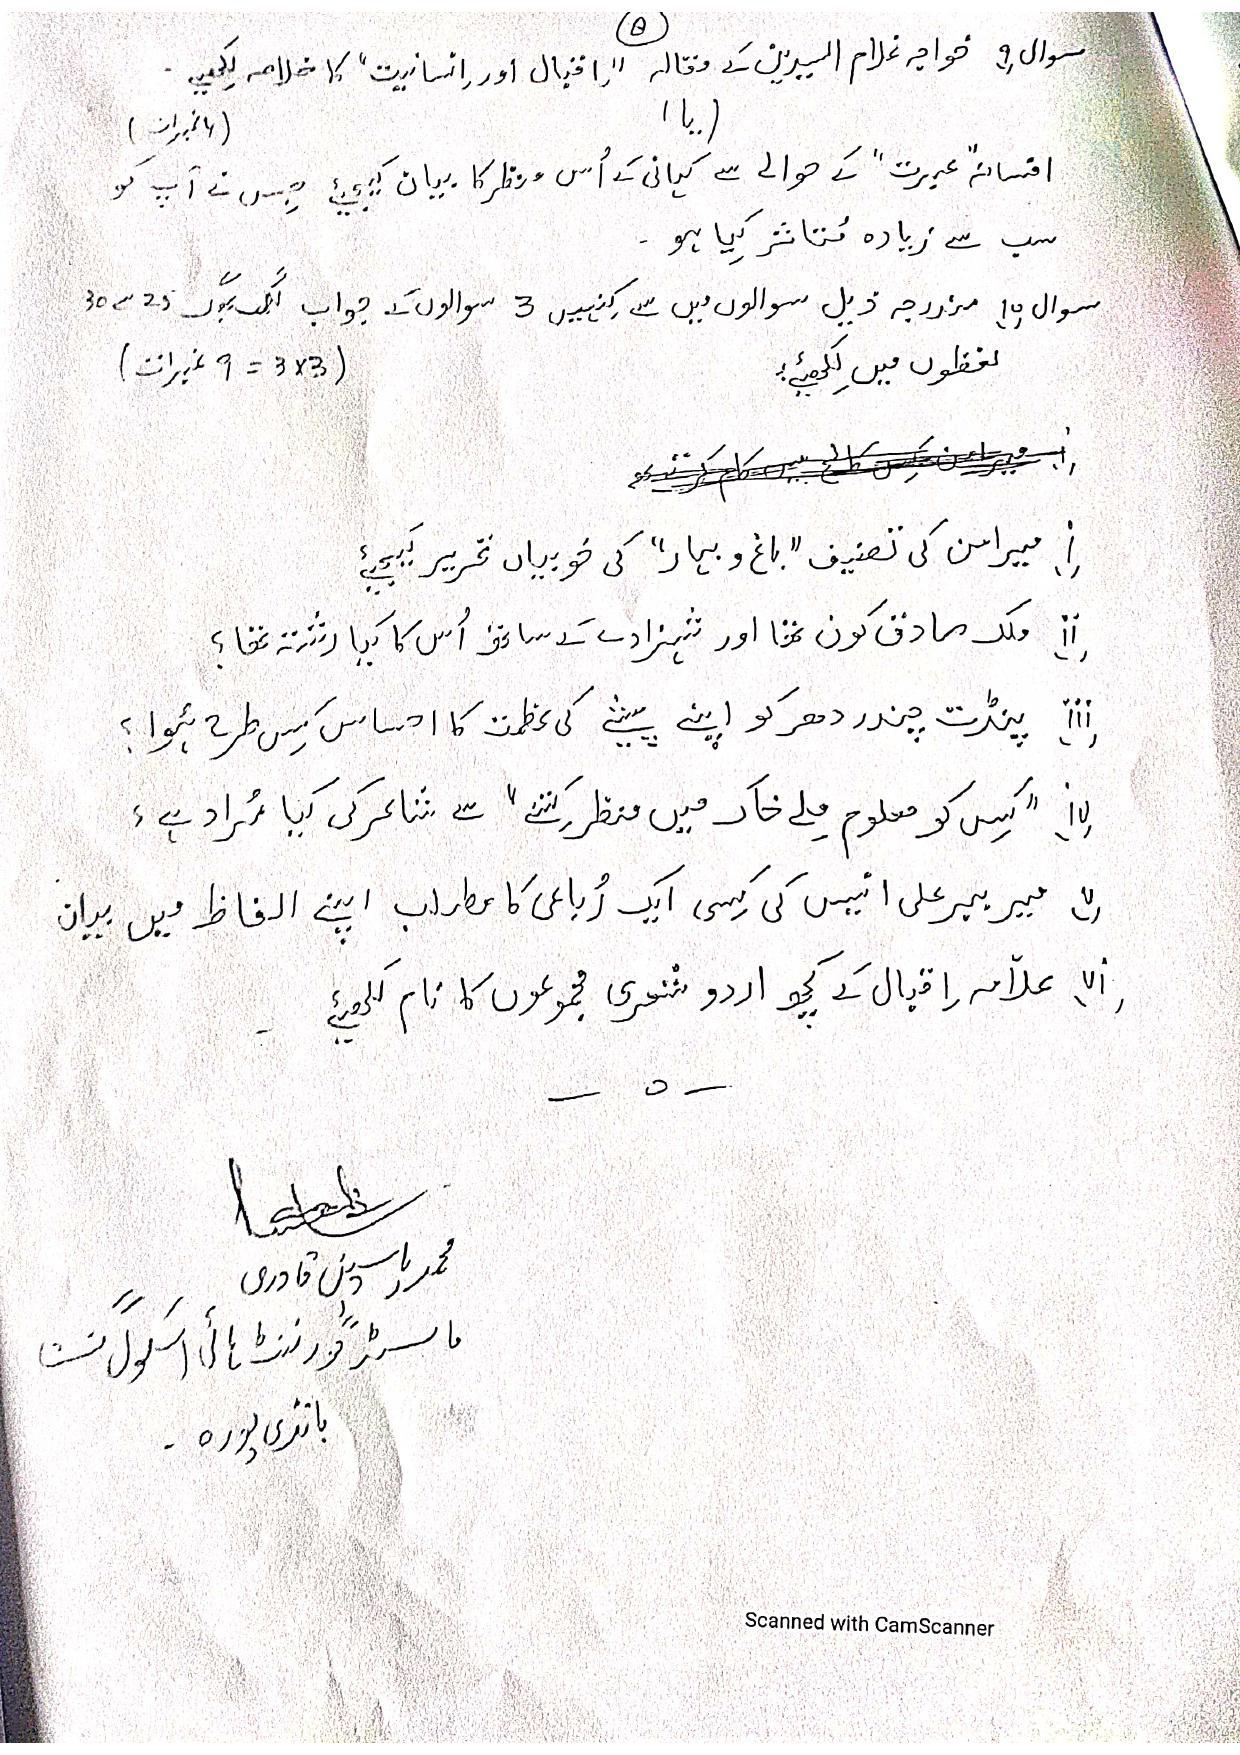 ۵
سوال ۹ خواجہ غلام السیدین کے مقالہ "اِقبال اور اِنسانیت" کا خلاصہ لِکھیے -
(یا)
افسانہ "عبرت" کے حوالے سے کہانی کے اُس منظر کا بیان کیجیۓ جس نے آپ کو
سب سے زیادہ مُتاثر کِیا ہو -
سوال ۱۰ مندرجہ ذیل سوالوں میں سے کِنہیں 3 سوالوں کے جواب لگ بھگ 25 سے 30
لفظوں میں لِکھیۓ: (3x3 = 9 نمبرات)
i میر امن کی تصنیف "باغ و بہار" کی خوبیاں تحریر کیجیۓ
ii ملک صادق کون تھا اور شہزادے کے ساتھ اُس کا کیا رشتہ تھا؟
iii پنڈت چندر دھر کو اپنے پیشے کی عظمت کا احساس کِس طرح ہُوا؟
iv "کِس کو معلوم مِلے خاک میں منظر کتنے" سے شاعر کی کیا مُراد ہے؟
v میر ببر علی انیس کی کِسی ایک رُباعی کا مطلب اپنے الفاظ میں بیان
vi علاّمہ اِقبال کے کچھ اردو شعری مجموعوں کا نام لکھیۓ -
— o —
محمد یاسین قادری
ماسٹر گورنمنٹ ہائی اسکول
بانڈی پورہ -
Scanned with CamScanner